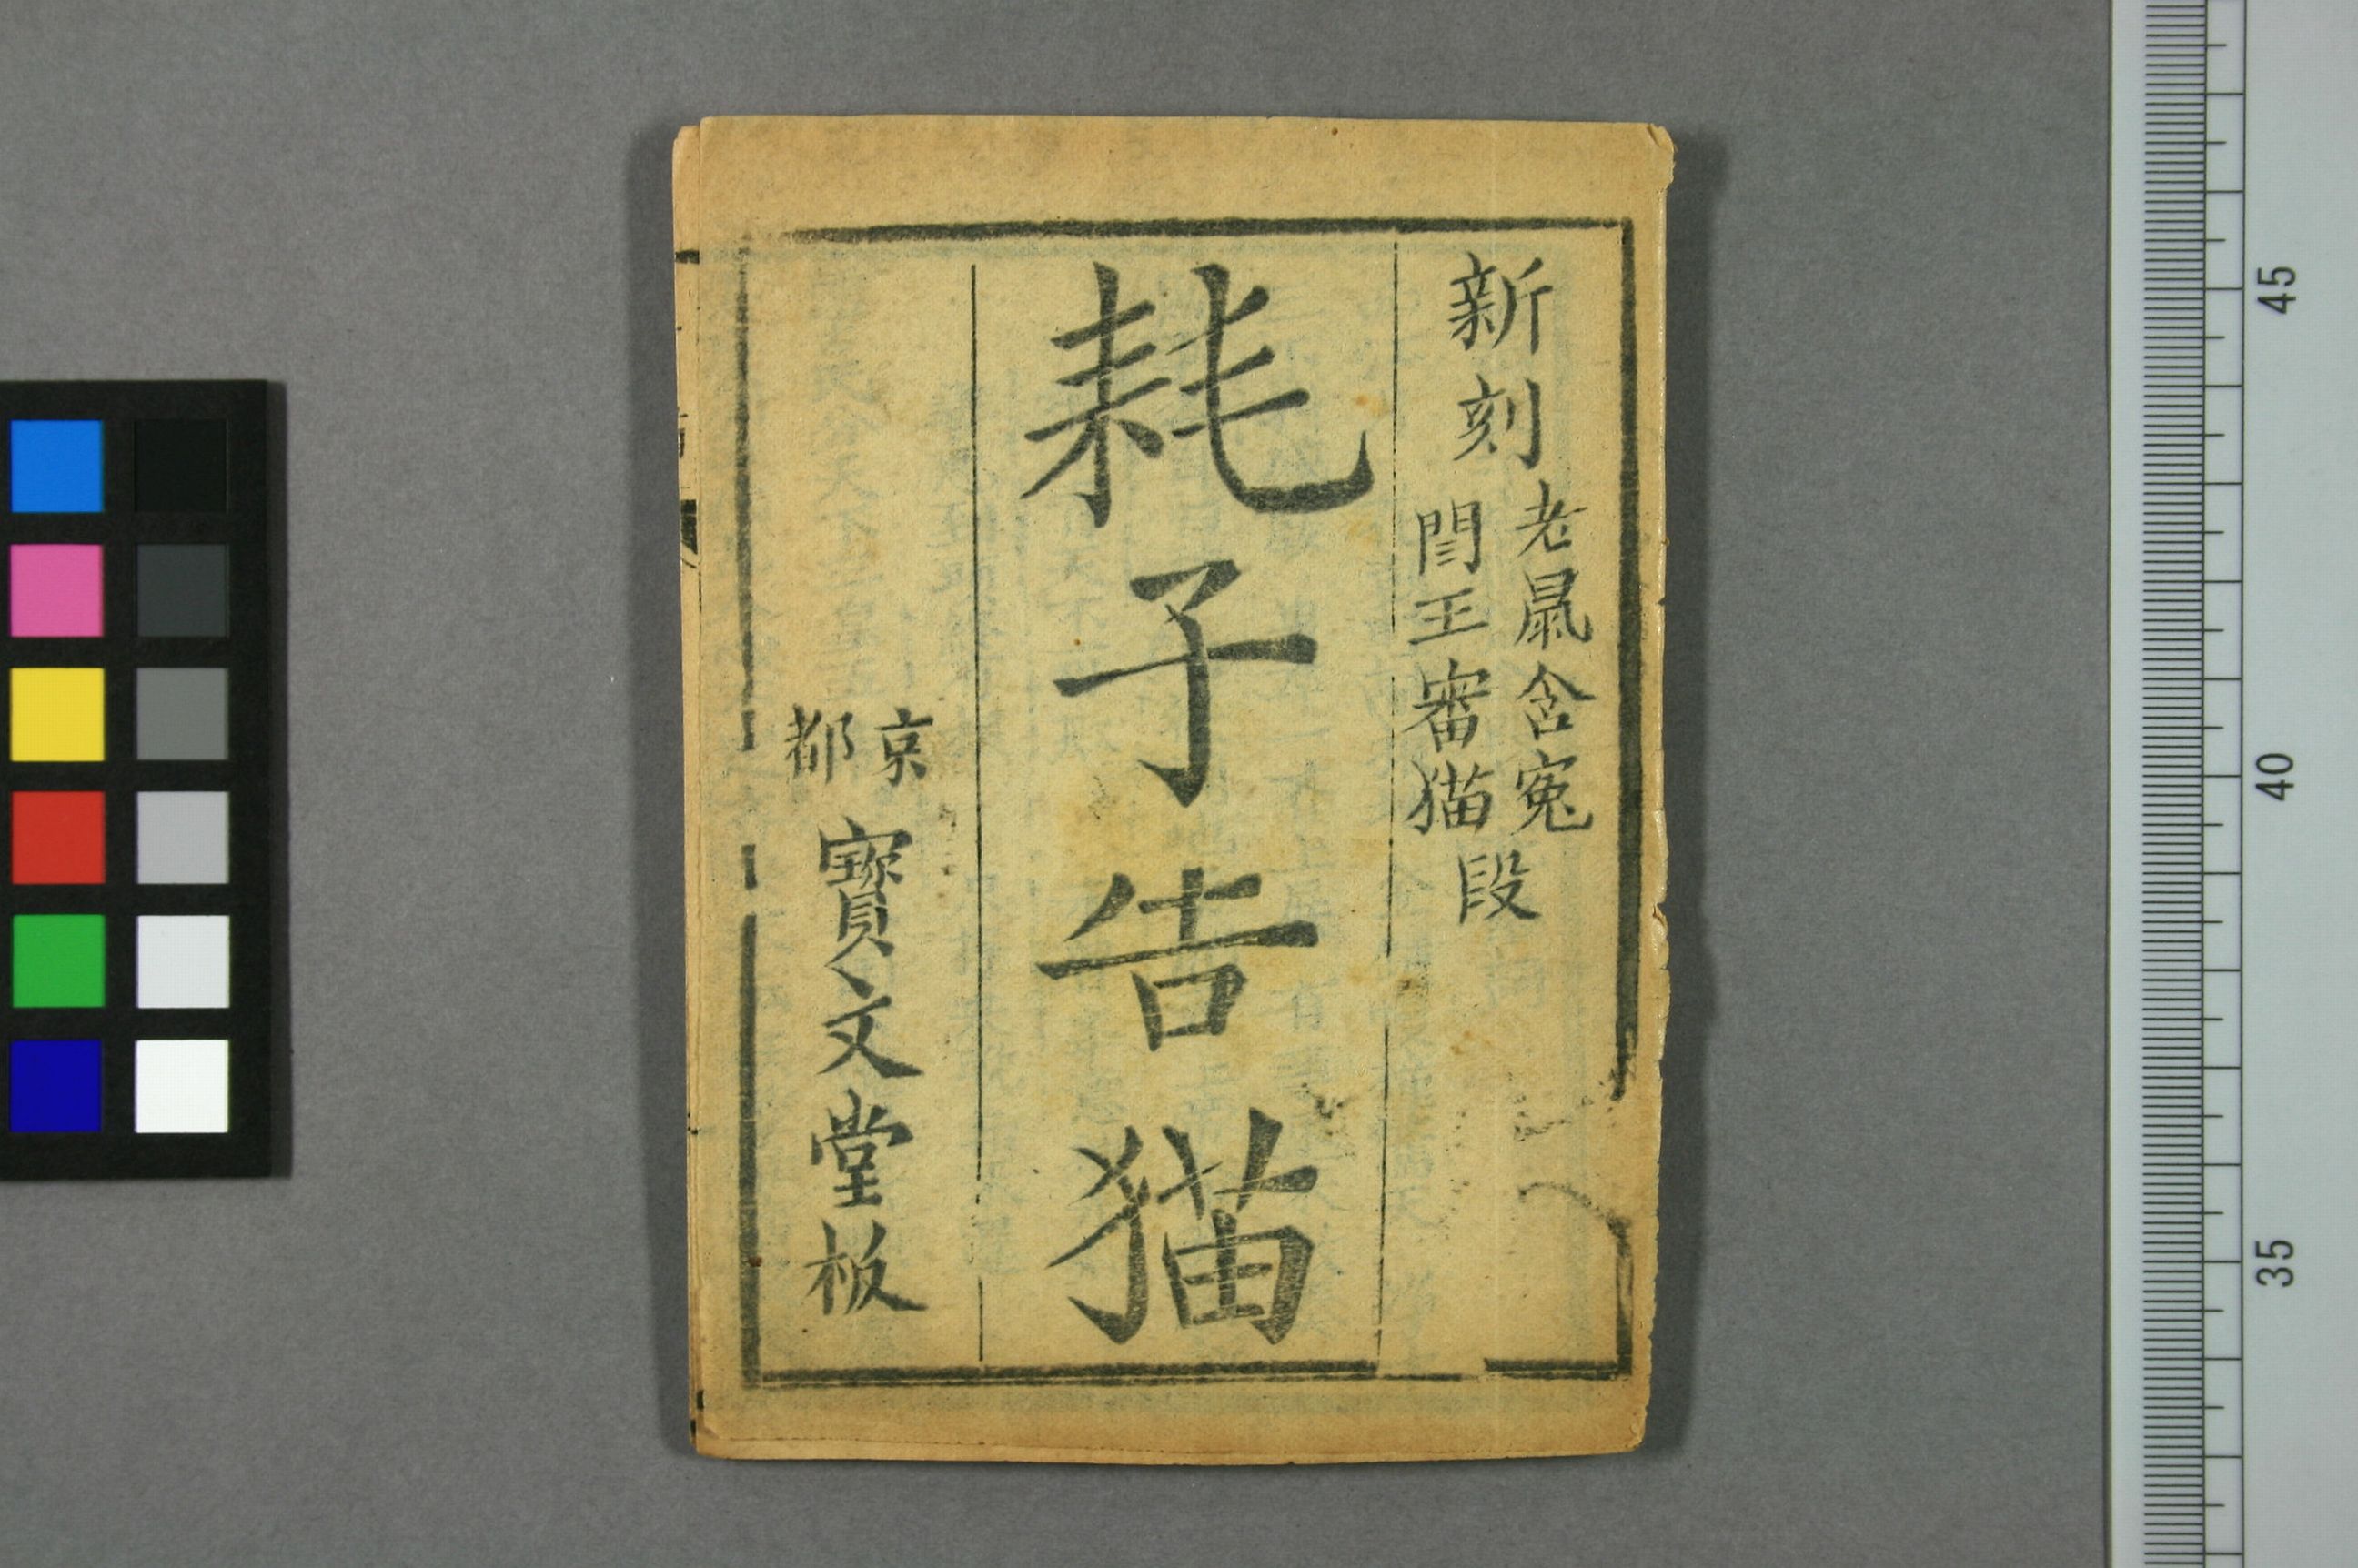 新刻
老鼠含寃
閆王審猫
段
耗子告猫
京都
寳文堂板
45
40
35